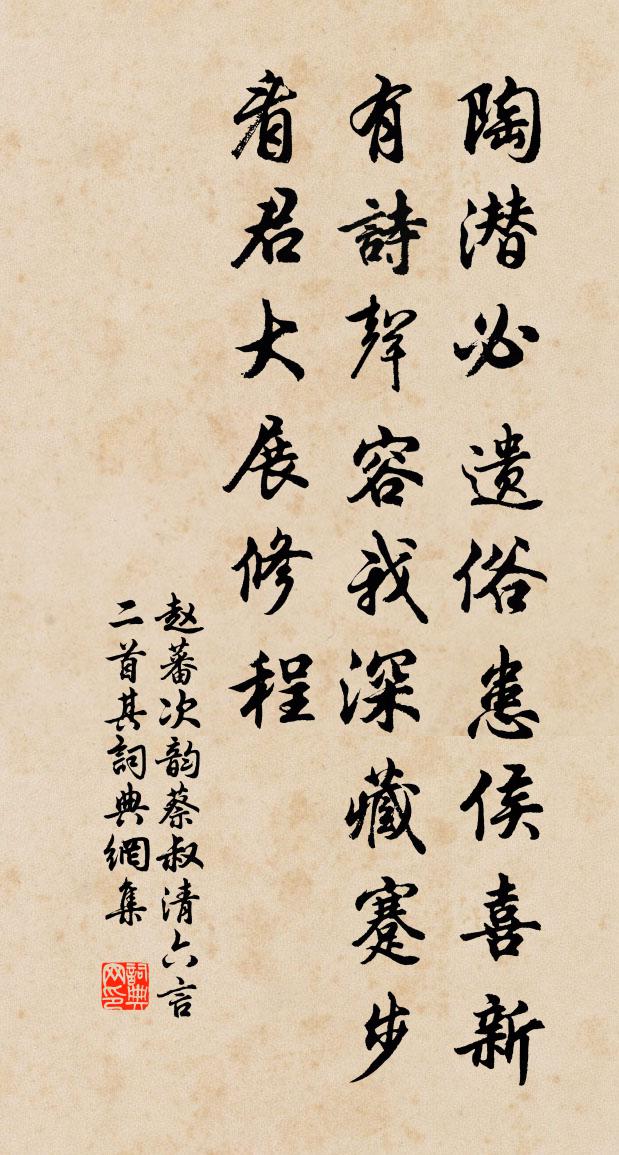 陶潜必遗俗患侯喜新
有詩聲容我深藏蹇步
看君大展修程
赵蕃次韵蔡叔清六言
二首其詞典網集
詞典
网印